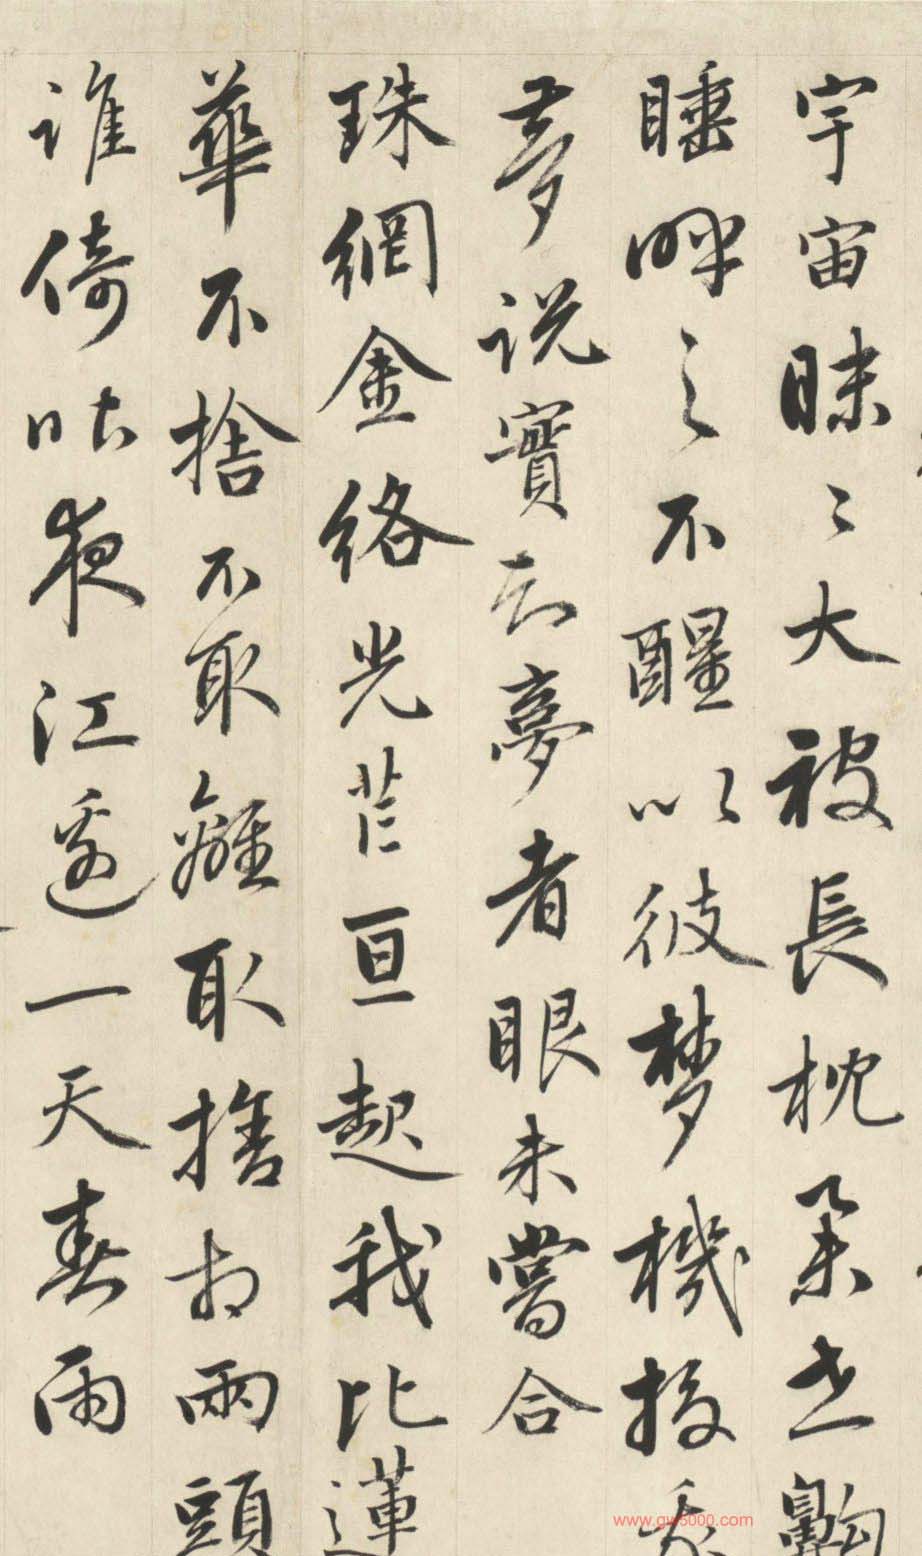 宇宙昧〻大被長枕世齁
睡呼之不醒以彼夢機投
夢説實夢者眼未嘗合
珠網金絡光芒亘起我比蓮
華不捨不取離取捨相兩頭
誰倚咄夜江邊一天春雨
www.gw5000.com